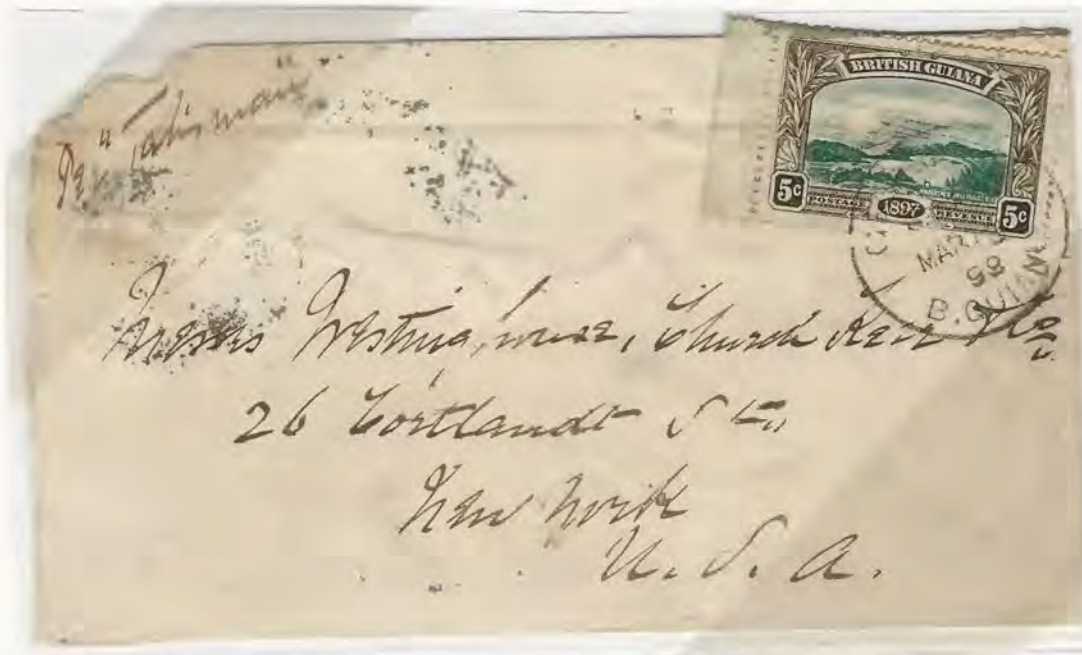 Per "Talisman"
BRITISH GUIANA
MOUNT RORAIMA
5c POSTAGE & 1897 REVENUE 5c
MAR
98
B.GUIANA
Messrs Westinghouse, Church Kerr & Co.
26 Cortlandt St.,
New York
U.S.A.